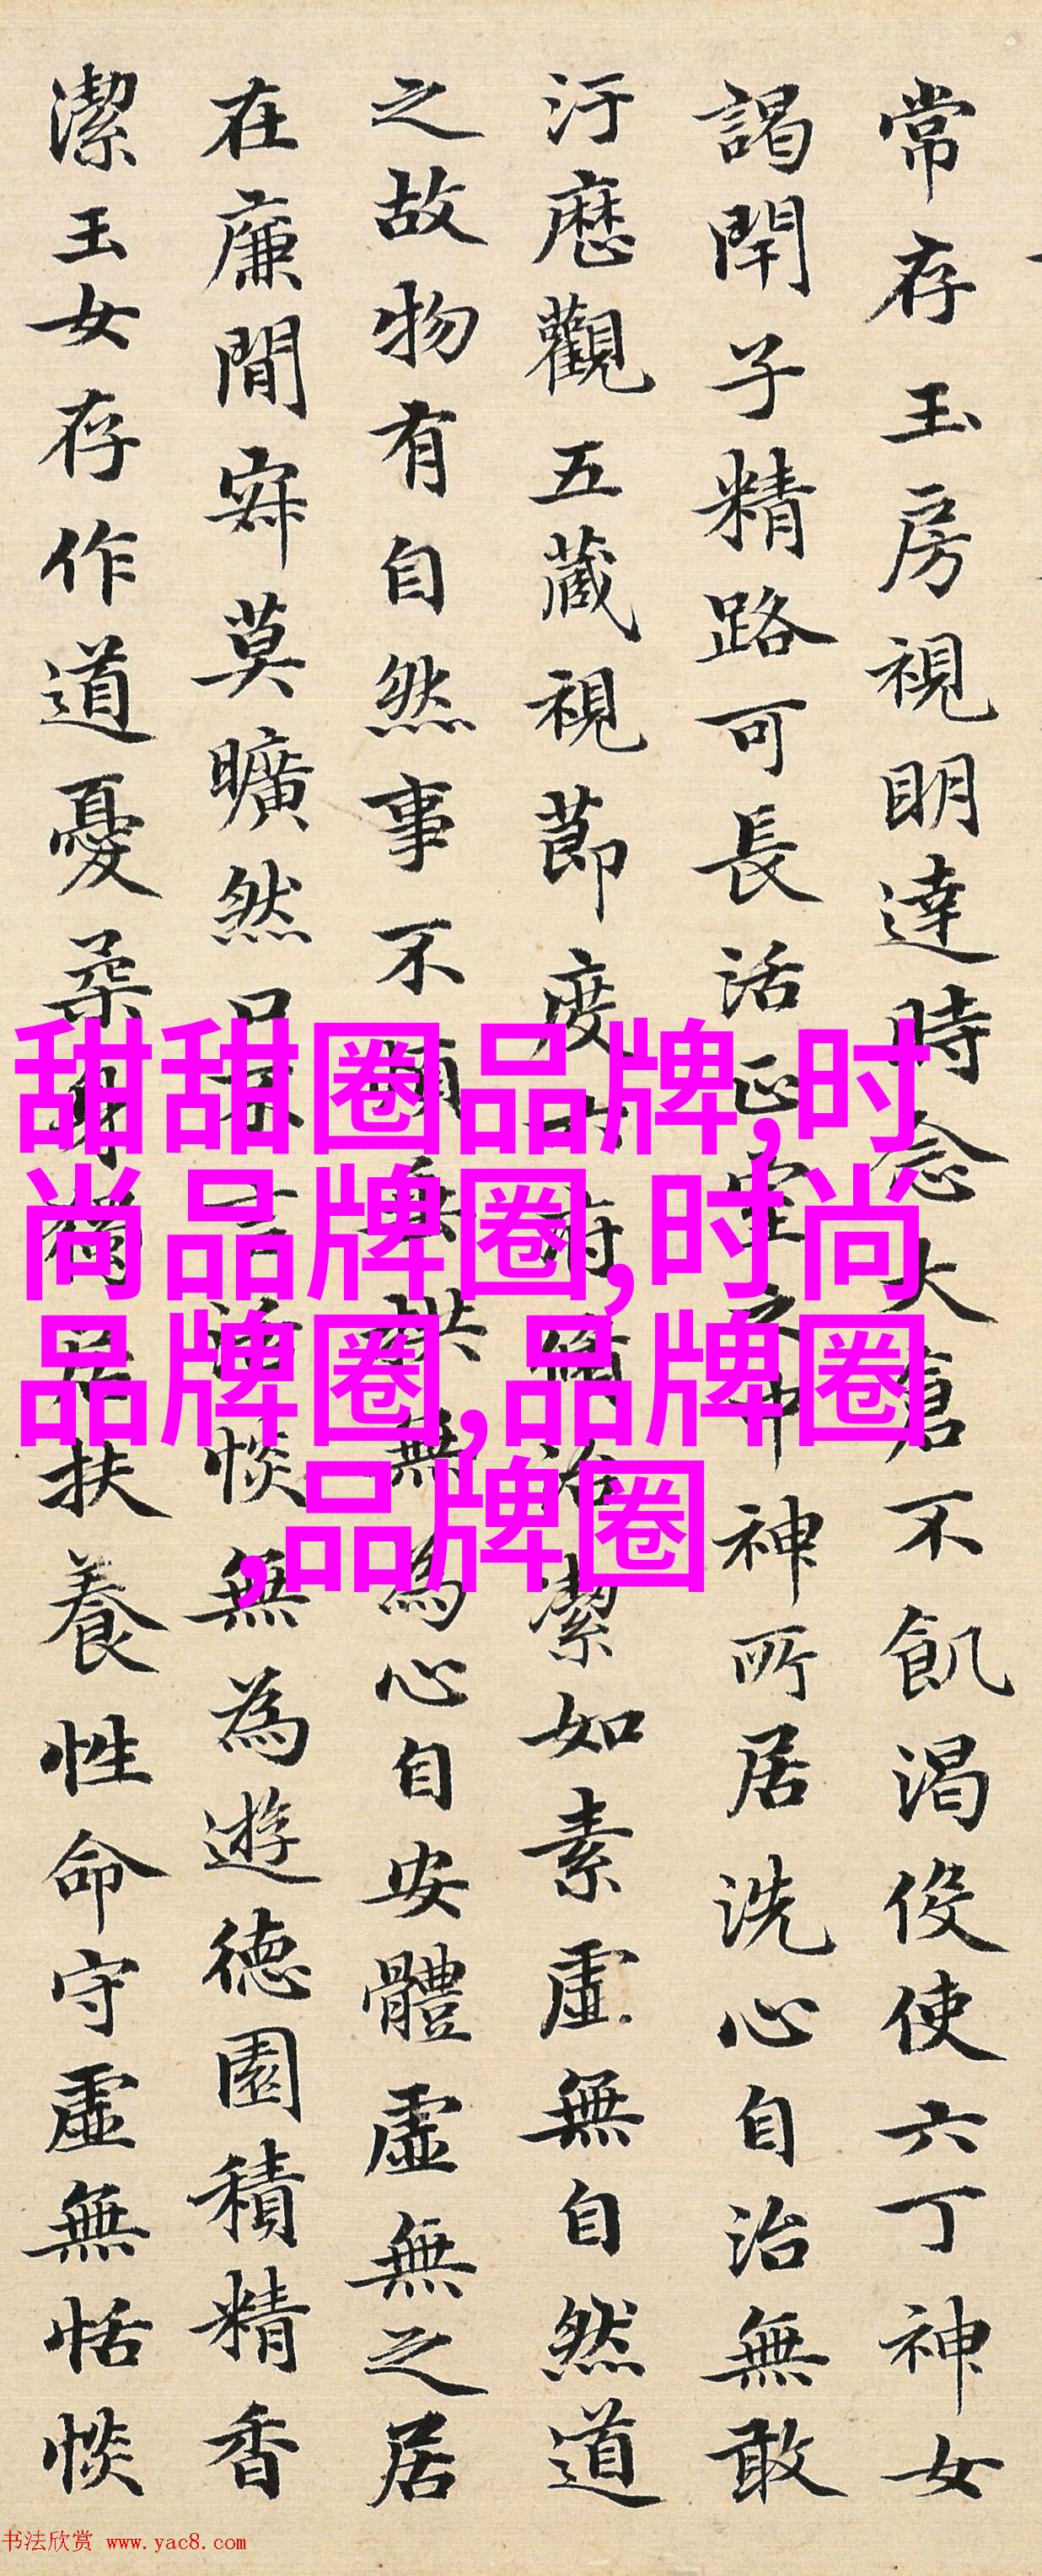 常存玉房視明達時念大倉不飢渴伇使六丁神女
謁閇子精路可長活正室之中神所居洗心自治無敢
汙歷觀五藏視節度六府修治潔如素虛無自然道
之故物有自然事不煩垂拱無為心自安體虛無之居
在廉間寂莫曠然口不言恬惔無為遊德園積精香
潔玉女存作道憂柔身獨居扶養性命守虛無恬惔
甜甜圈品牌,时
尚品牌圈,时尚
品牌圈,品牌圈
,品牌圈
书法欣赏 www.yac8.com